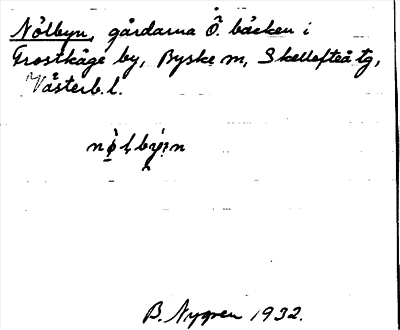 Nölbyn, gårdarna Ö. bäcken i
Frostkåge by, Byske sn, Skellefteå tg,
Västerb. l.
B. Nygren 1932.